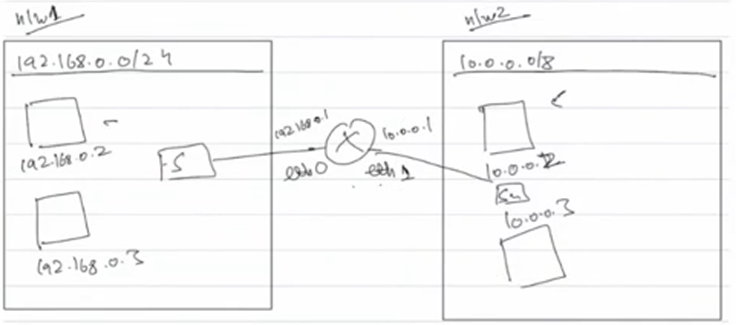 n/w1
192.168.0.0/24
192.168.0.2
S
192.168.0.3
192.168.0.1
eth0
10.0.0.1
eth1
n/w2
10.0.0.0/8
10.0.0.2
Sw
10.0.0.3